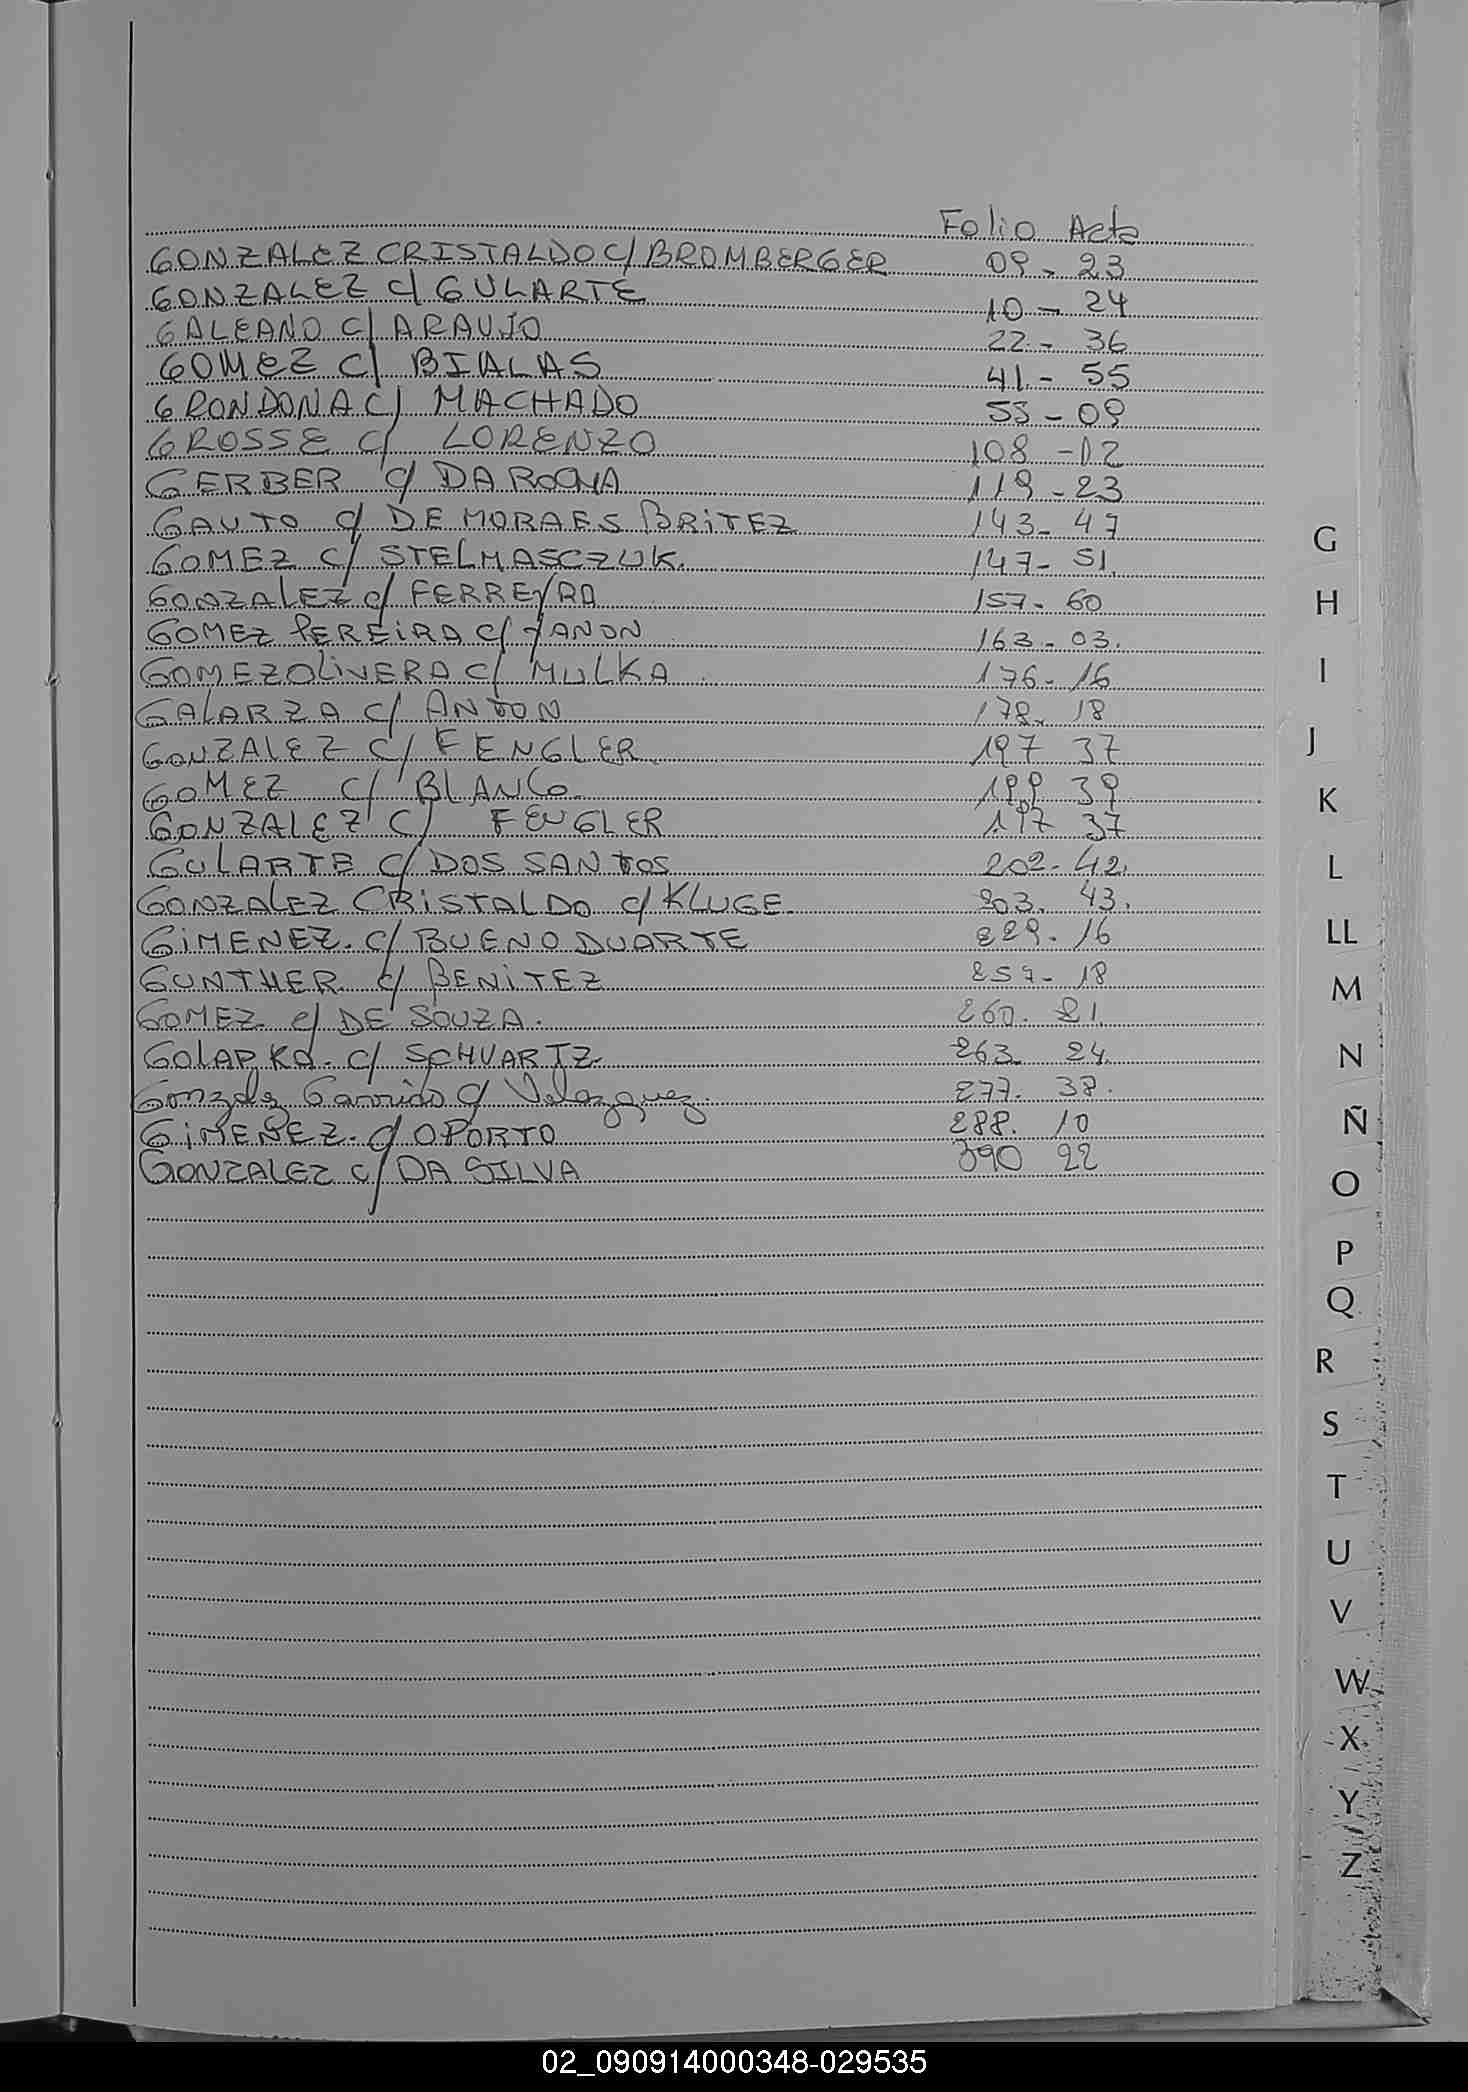 Folio Acta
GONZALEZ CRISTALDO C/ BROMBERGER 09 - 23
GONZALEZ C/ GULARTE 10 - 24
GALEANO C/ ARAUJO 22 - 36
GOMEZ C/ BIALAS 41 - 55
GRONDONA C/ MACHADO 55 - 09
GROSSE C/ LORENZO 108 - 12
GERBER C/ DA ROCHA 119 - 23
GAUTO C/ DE MORAES BRITEZ 143 - 47
GOMEZ C/ STELMASCZUK. 147 - 51.
GONZALEZ C/ FERREYRA 157 - 60
GOMEZ PEREIRA C/ 163 - 03.
GOMEZ OLIVERA C/ MULKA 176 - 16
GALARZA C/ ANTON 178. 18
GONZALEZ C/ FENGLER 197 37
GOMEZ C/ BLANCO. 199 39
GONZALEZ C/ FENGLER 197 37
GULARTE C/ DOS SANTOS 202 - 42.
GONZALEZ CRISTALDO C/ KLUGE. 203. 43.
GIMENEZ. C/ BUENO DUARTE 229. 16
GUNTHER. C/ BENITEZ 257 - 18
GOMEZ C/ DE SOUZA. 260. 21.
C/ SCHVARTZ. 263. 24.
Gonzalez Garrido c/ Velazquez. 277. 38.
GIMENEZ. C/ OPORTO 288. 10
GONZALEZ C/ DA SILVA 390 22
G
H
I
J
K
L
LL
M
N
Ñ
O
P
Q
R
S
T
U
V
W
X
Y
Z
02_090914000348-029535